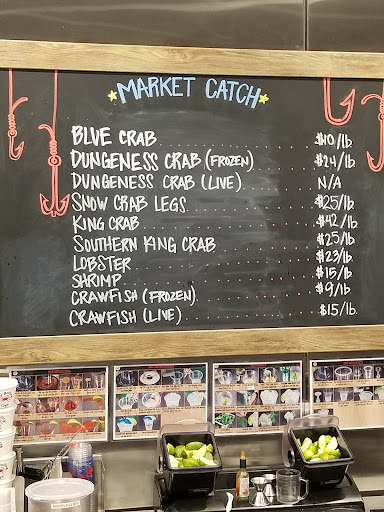 MARKET CATCH
BLUE CRAB $40/lb
DUNGENESS CRAB (FROZEN) $24/lb
DUNGENESS CRAB (LIVE) N/A
SNOW CRAB LEGS $25/lb
KING CRAB $42/lb
SOUTHERN KING CRAB $25/lb
LOBSTER $23/lb
SHRIMP $15/lb
CRAWFISH (FROZEN) $9/lb
CRAWFISH (LIVE) $15/lb